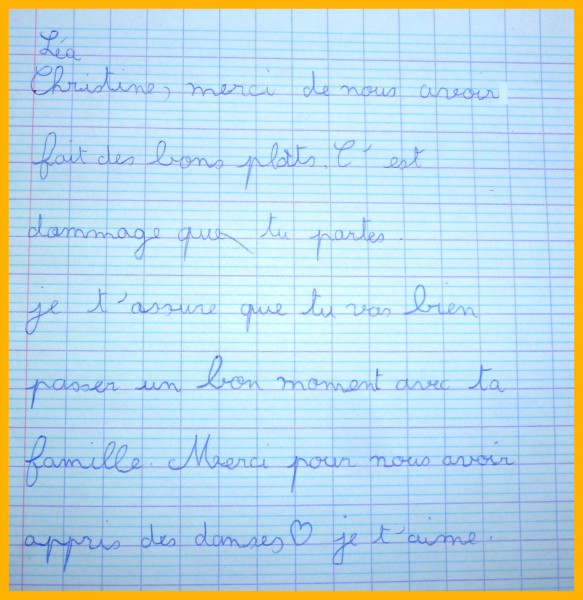 Léa
Christine, merci de nous avoir
fait des bons plats. C'est
dammage que tu partes.
je t'assure que tu vas bien
passer un bon moment avec ta
famille. Merci pour nous avoir
appris des danses♡ je t'aime.